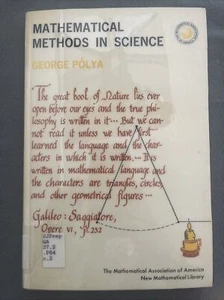 MATHEMATICAL
METHODS IN SCIENCE
GEORGE PÓLYA
The great book of Nature lies ever
open before our eyes and the true phi-
losophy is written in it ... But we can-
not read it unless we have first
learned the language and the char-
acters in which it is written ... It is
written in mathematical language and
the characters are triangles, circles,
and other geometrical figures ...
Galileo: Saggiatore,
Opere VI, p. 232
QA
37.2
.P64
The Mathematical Association of America
New Mathematical Library